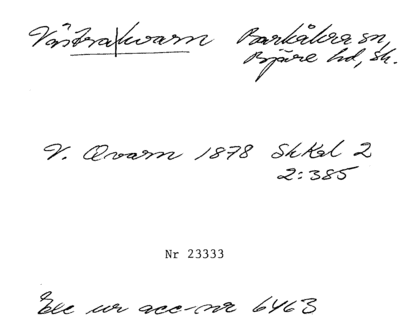 Västra|kvarn Barkåkra sn,
Bjäre hd, Sk.
V. Qvarn 1878 SkKal 2
2:385
Nr 23333
Exc ur acc-nr 6463